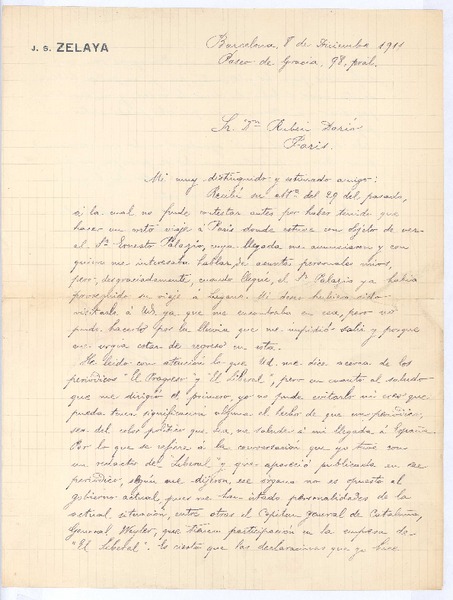 J. S. ZELAYA
Barcelona, 8 de Diciembre 1911
Paseo de Gracia, 98, pral.
Sr. Dn Rubén Darío
Paris.
Mi muy distinguido y estimado amigo:
Recibí su atta del 29 del pasado,
a la cual no pude contestar antes por haber tenido que
hacer un corto viaje á Paris donde estuve con objeto de ver
al Sr Ernesto Palazio, cuya llegada me anunciaron y con
quien me interesaba hablar de asuntos personales mios,
pero, desgraciadamente, cuando llegué, el Sr Palazio ya habia
proseguido su viaje á Lugano. Mi deseo hubiera sido
visitarlo á Ud. ya que me encontraba en esa, pero no
pude hacerlo por la lluvia que me impidió salir y porque
me urgía estar de regreso en esta.
He leido con atención lo que Ud. me dice acerca de los
periódicos "El Progreso" y "El Liberal", pero en cuanto al saludo
que me dirigió el primero, yo no pude evitarlo ni creo que
pueda tener significación alguna el hecho de que un periódico,
sea del color político que sea, me salude á mi llegada á España.
Por lo que se refiere á la conversación que yo tuve con
un redactor de "El Liberal" y que apareció publicada en ese
periódico, según me dijeron, ese órgano no es opuesto al
gobierno actual, pues me han citado personalidades de la
actual situación, entre otros el Capitan general de Cataluña,
General Weyler, que tienen participación en la empresa de
"El Liberal". Es cierto que las declaraciones que yo hice